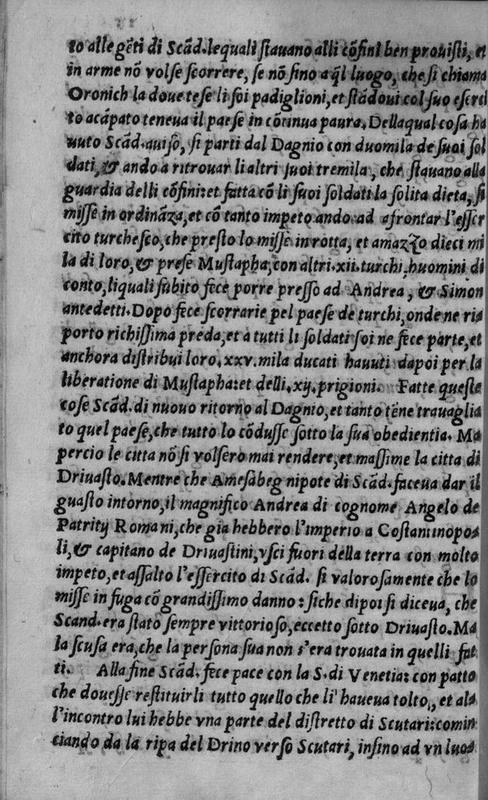 to alle gēti di Scād. lequali stauano alli cōfini ben prouisti, et
in arme nō volse scorrere, se nō fino a q̄l luogo, che si chiama
Oronich la doue tese li soi padiglioni, et stādoui col suo eserci
to acāpato teneua il paese in cōtinua paura. Dellaqual cosa ha
uuto Scād. auiso, si parti dal Dagnio con duomila de suoi sol
dati, & ando a ritrouar li altri suoi tremila, che stauano alla
guardia delli cōfini: et fatta cō li suoi soldati la solita dieta, si
misse in ordināza, et cō tanto impeto ando ad afrontar l'esser
cito turchesco, che presto lo misse in rotta, et amazzo dieci mi
la di loro, & prese Mustapha, con altri .xii. turchi huomini di
conto, liquali subito fece porre presso ad Andrea, & Simon
antedetti. Dopo fece scorrarie pel paese de turchi, onde ne ria
porto richissima preda, et a tutti li soldati soi ne fece parte, et
anchora distribui loro .xxv. mila ducati hauuti dapoi per la
liberatione di Mustapha: et delli .xij. prigioni. Fatte queste
cose Scād. di nuouo ritorno al Dagnio, et tanto tēne trauaglia
to quel paese, che tutto lo cōdusse sotto la sua obedientia. Ma
percio le citta nō si volsero mai rendere, et massime la citta di
Driuasto. Mentre che Amesabeg nipote di Scād. faceua dar il
guasto intorno, il magnifico Andrea di cognome Angelo de
Patrity Romani, che gia hebbero l'imperio a Costantinopo-
li, & capitano de Driuastini, vsci fuori della terra con molto
impeto, et assalto l'essercito di Scād. si valorosamente che lo
misse in fuga cō grandissimo danno: siche dipoi si diceua, che
Scand. era stato sempre vittorioso, eccetto sotto Driuasto. Ma
la scusa era, che la persona sua non s'era trouata in quelli fat
ti. Alla fine Scād. fece pace con la S. di Venetia: con patto
che douesse restituirli tutto quello che li haueua tolto, et al-
l'incontro lui hebbe vna parte del distretto di Scutari: comin
ciando da la ripa del Drino verso Scutari, insino ad vn luo-